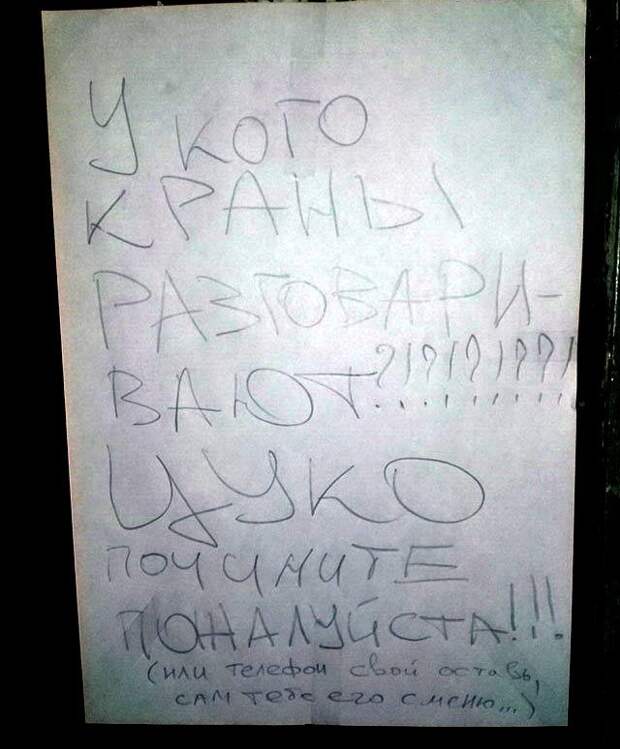 У КОГО
КРАНЫ
РАЗГОВАРИ-
ВАЮТ?!?!?!?!??!
ЦУКО
ПОЧИНИТЕ
ПОЖАЛУЙСТА!!!
(или телефон свой оставь,
сам тебе его сменю...)